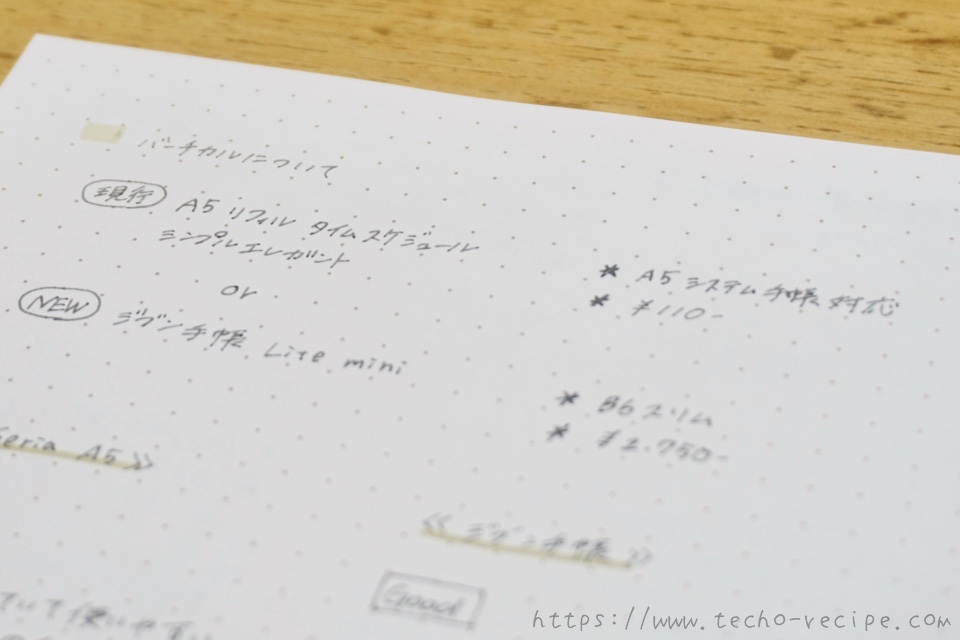 バーチカルについて
現行 A5 リフィル タイムスケジュール
シンプルエレガント
* A5 システム手帳 対応
* ¥110-
or
NEW ジブン手帳 Lite mini
* B6 スリム
* ¥2.750-
eria A5》
《ジブン手帳》
Good
ていて使いやすい
https://www.techo-recipe.com